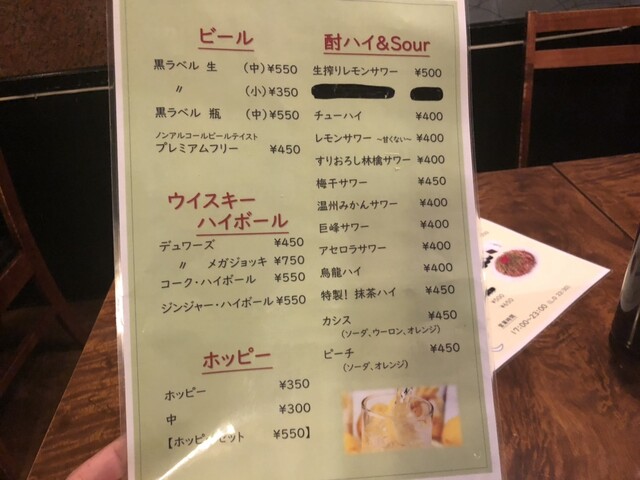 ビール
黒ラベル 生 (中) ¥550
〃 (小) ¥350
黒ラベル 瓶 (中) ¥550
ノンアルコールビールテイスト
プレミアムフリー ¥450
ウイスキー
ハイボール
デュワーズ ¥450
〃 メガジョッキ ¥750
コーク・ハイボール ¥550
ジンジャー・ハイボール ¥550
ホッピー
ホッピー ¥350
中 ¥300
【ホッピーセット ¥550】
酎ハイ&Sour
生搾りレモンサワー ¥500
チューハイ ¥400
レモンサワー ~甘くない~ ¥400
すりおろし林檎サワー ¥400
梅干サワー ¥450
温州みかんサワー ¥400
巨峰サワー ¥400
アセロラサワー ¥400
烏龍ハイ ¥400
特製! 抹茶ハイ ¥450
カシス ¥450
(ソーダ、ウーロン、オレンジ)
ピーチ ¥450
(ソーダ、オレンジ)
17:00~23:00